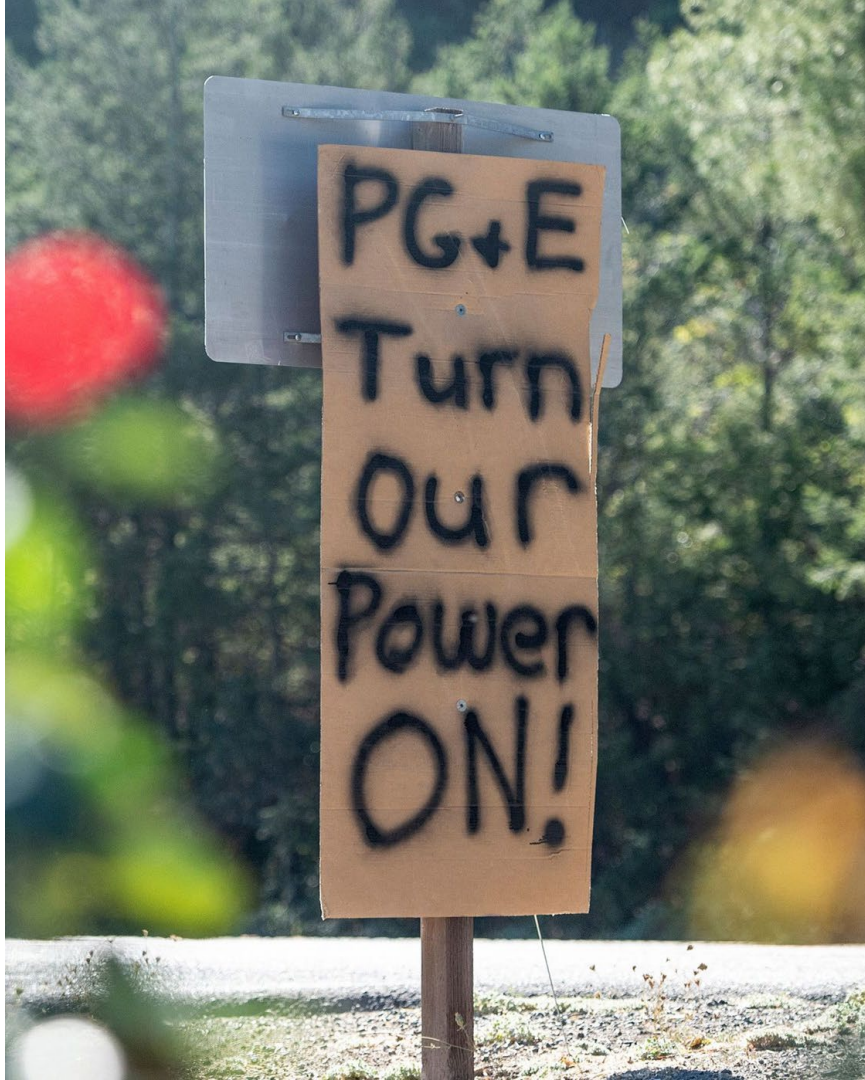 PG+E
Turn
our
Power
ON!